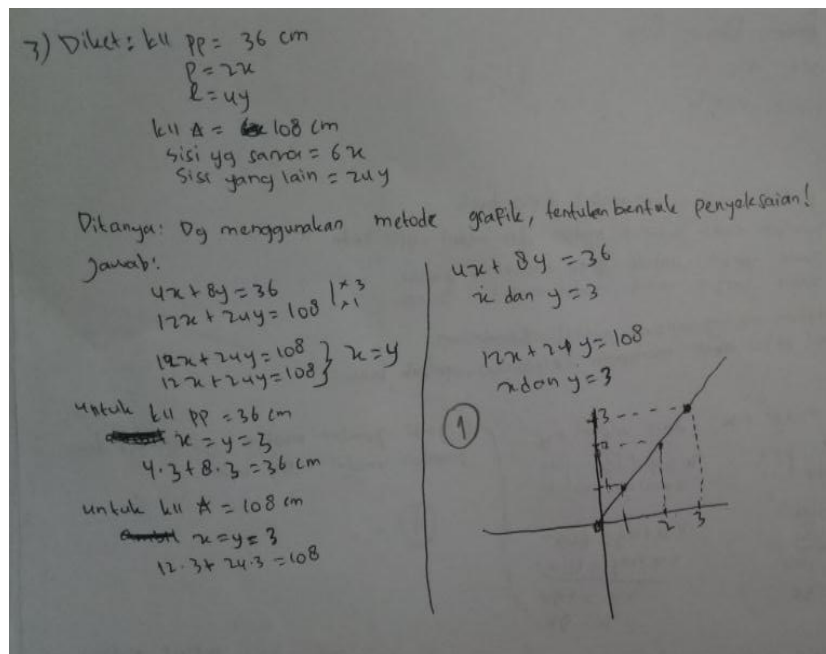 3) Diket: kll pp = 36 cm
p = 2x
l = 4y
kll △ = 108 cm
sisi yg sama = 6x
sisi yang lain = 24y
Ditanya: Dg menggunakan metode grafik, tentukan bentuk penyelesaian!
Jawab:
4x + 8y = 36 | ×3
12x + 24y = 108 | ×1
12x + 24y = 108 } x = y
12x + 24y = 108
untuk kll pp = 36 cm
x = y = 3
4·3 + 8·3 = 36 cm
untuk kll △ = 108 cm
x = y = 3
12·3 + 24·3 = 108
4x + 8y = 36
x dan y = 3
12x + 24y = 108
x dan y = 3
1
3
2
1
1 2 3